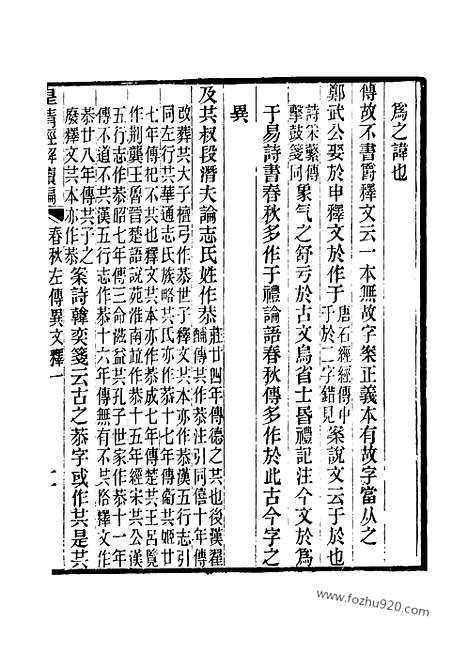 爲之諱也
傳故不書爵釋文云一本無故字案正義本有故字當从之
鄭武公娶於申釋文於作于唐石經經傳中于於二字錯見案說文云于於也
詩采蘩傳擊鼓箋同象气之舒亏於古文烏省士昏禮記注今文於爲
于易詩書春秋多作于禮論語春秋傳多作於此古今字之
異
及其叔段潛夫論志氏姓作恭莊廿四年傳德之共也後漢翟
酺傳共作恭注引同僖十年傳
改葬共大子檀弓作恭世子釋文共本亦作恭漢五行志引
同左行共華通志氏族略共氏亦作恭十七年傳衞共姬廿
七年傳杞不共也釋文共本亦作恭成七年傳楚共王呂覽
作荆龔王魯晉楚語說苑淮南竝作恭十五年經宋共公漢
五行志作恭昭七年傳三命滋益共孔子世家作恭十一年
傳不道不共漢五行志作恭十六年傳無有不共恪釋文作
恭廿八年傳共子之
廢釋文共本亦作恭案詩韓奕箋云古之恭字或作共是共
皇清經解續編
春秋左傳異文釋一
二
www.fozhu920.com